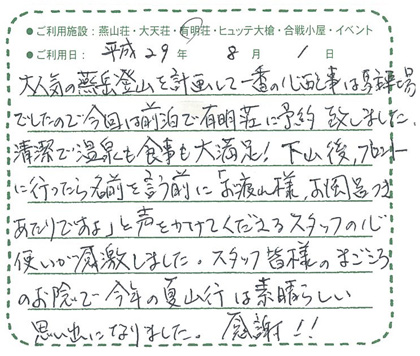 ●ご利用施設：燕山荘・大天荘・有明荘・ヒュッテ大槍・合戦小屋・イベント
●ご利用日：平成29年8月1日
大人気の燕岳登山を計画して一番の心配事は駐車場
でしたので今回は前泊で有明荘に予約致しました。
清潔で温泉も食事も大満足！下山後、フロント
に行ったら名前を言う前に「お疲れ様、お風呂つき
あたりですよ」と声をかけてくださるスタッフの心
使いが感激しました。スタッフ皆様のまごころ
のお陰で今年の夏山行は素晴らしい
思い出になりました。感謝！！